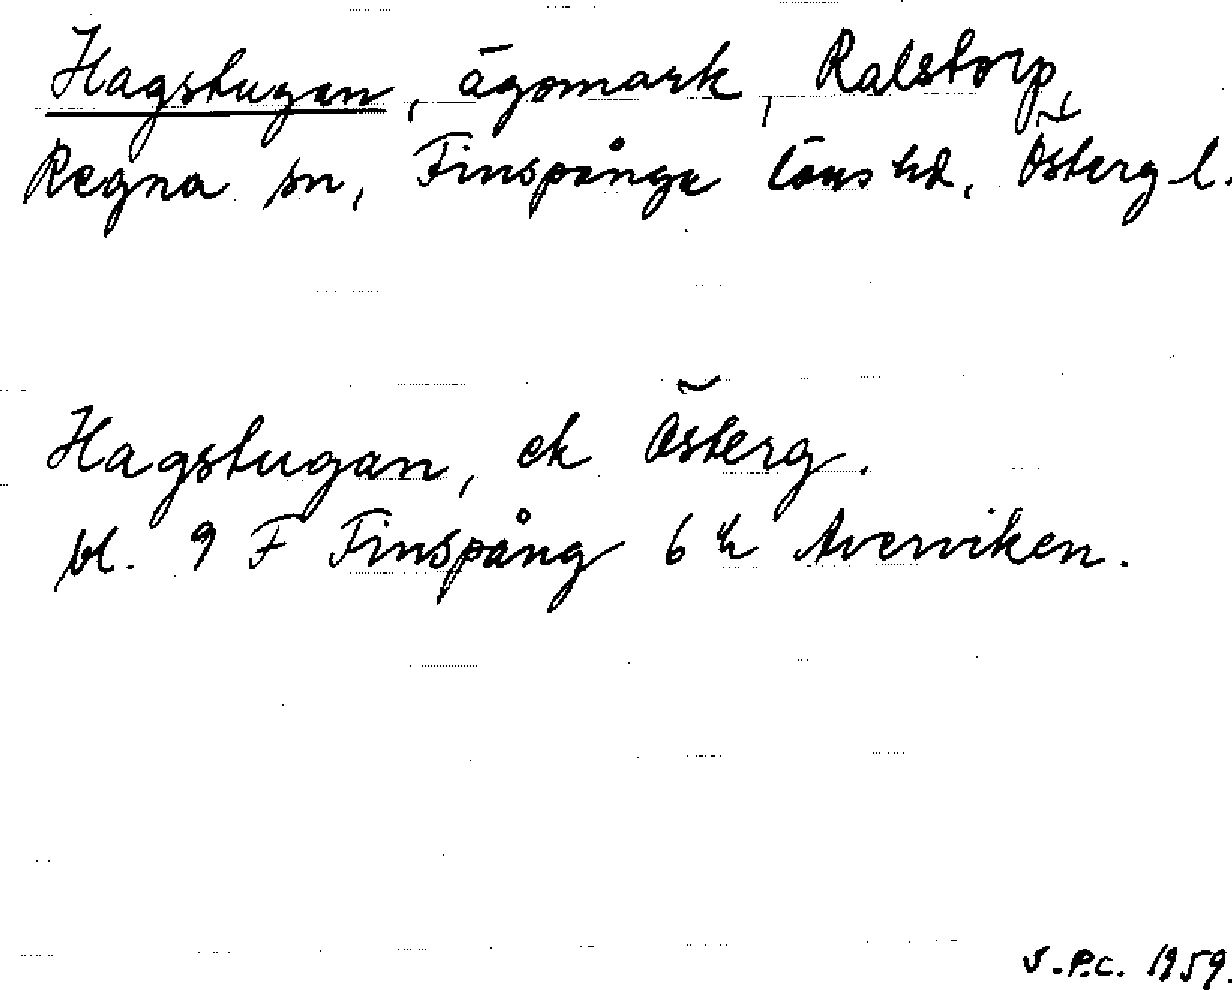 Hagstugan, ägomark, Ralstorp
Regna sn, Finspånga läns hd, Österg l.
Hagstugan, ek Österg.
bl. 9 F Finspång 6 h Averviken.
V.P.C. 1959.